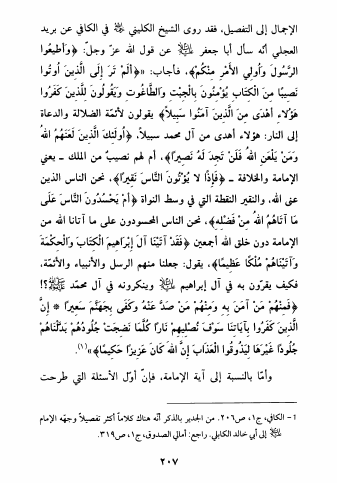 الإجمال إلى التفصيل، فقد روى الشيخ الكليني في الكافي عن بريد
العجلي أنّه سأل أبا جعفر عن قول الله عزّ وجلّ: ﴿وَأَطِيعُوا
الرَّسُولَ وَأُولِي الأَمْرِ مِنْكُمْ﴾، فأجاب: «﴿أَلَمْ تَرَ إِلَى الَّذِينَ أُوتُوا
نَصِيبًا مِنَ الْكِتَابِ يُؤْمِنُونَ بِالْجِبْتِ وَالطَّاغُوتِ وَيَقُولُونَ لِلَّذِينَ كَفَرُوا
هَؤُلَاءِ أَهْدَى مِنَ الَّذِينَ آمَنُوا سَبِيلاً﴾ يقولون لأئمّة الضلالة والدعاة
إلى النار: هؤلاء أهدى من آل محمد سبيلاً، ﴿أُولَئِكَ الَّذِينَ لَعَنَهُمُ اللهُ
وَمَنْ يَلْعَنِ اللهُ فَلَنْ تَجِدَ لَهُ نَصِيرًا﴾، أم لهم نصيبٌ من الملك ـ يعني
الإمامة والخلافة ـ ﴿فَإِذًا لا يُؤْتُونَ النَّاسَ نَقِيرًا﴾، نحن الناس الذين
عنى الله، والنقير النقطة التي في وسط النواة ﴿أَمْ يَحْسُدُونَ النَّاسَ عَلَى
مَا آتَاهُمُ اللهُ مِنْ فَضْلِهِ﴾، نحن الناس المحسودون على ما آتانا الله من
الإمامة دون خلق الله أجمعين ﴿فَقَدْ آتَيْنَا آلَ إِبْرَاهِيمَ الْكِتَابَ وَالْحِكْمَةَ
وَآتَيْنَاهُمْ مُلْكًا عَظِيمًا﴾، يقول: جعلنا منهم الرسل والأنبياء والأئمّة،
فكيف يقرّون به في آل إبراهيم وينكرونه في آل محمّد ؟!
﴿فَمِنْهُمْ مَنْ آمَنَ بِهِ وَمِنْهُمْ مَنْ صَدَّ عَنْهُ وَكَفَى بِجَهَنَّمَ سَعِيرًا * إِنَّ
الَّذِينَ كَفَرُوا بِآيَاتِنَا سَوْفَ نُصْلِيهِمْ نَارًا كُلَّمَا نَضِجَتْ جُلُودُهُمْ بَدَّلْنَاهُمْ
جُلُودًا غَيْرَهَا لِيَذُوقُوا الْعَذَابَ إِنَّ اللهَ كَانَ عَزِيزًا حَكِيمًا﴾»(١).
وأمّا بالنسبة إلى آية الإمامة، فإنّ أوّل الأسئلة التي طرحت
١- الكافي، ج١، ص٢٠٦. من الجدير بالذكر أنّه هناك كلاماً أكثر تفصيلاً وجهّه الإمام
إلى أبي خالد الكابلي. راجع: أمالي الصدوق، ج١، ص٣١٩.
٢٠٧